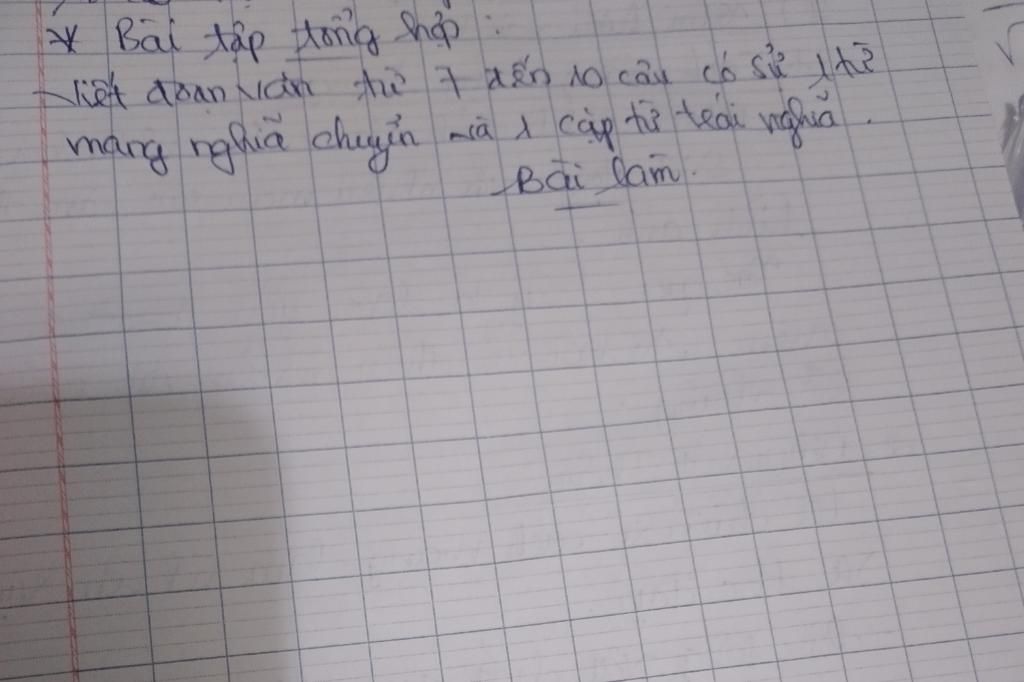 * Bài tập tổng hợp :
Viết đoạn văn từ 7 đến 10 câu có sử 1 từ
mang nghĩa chuyển và 1 cặp từ trái nghĩa.
Bài làm.